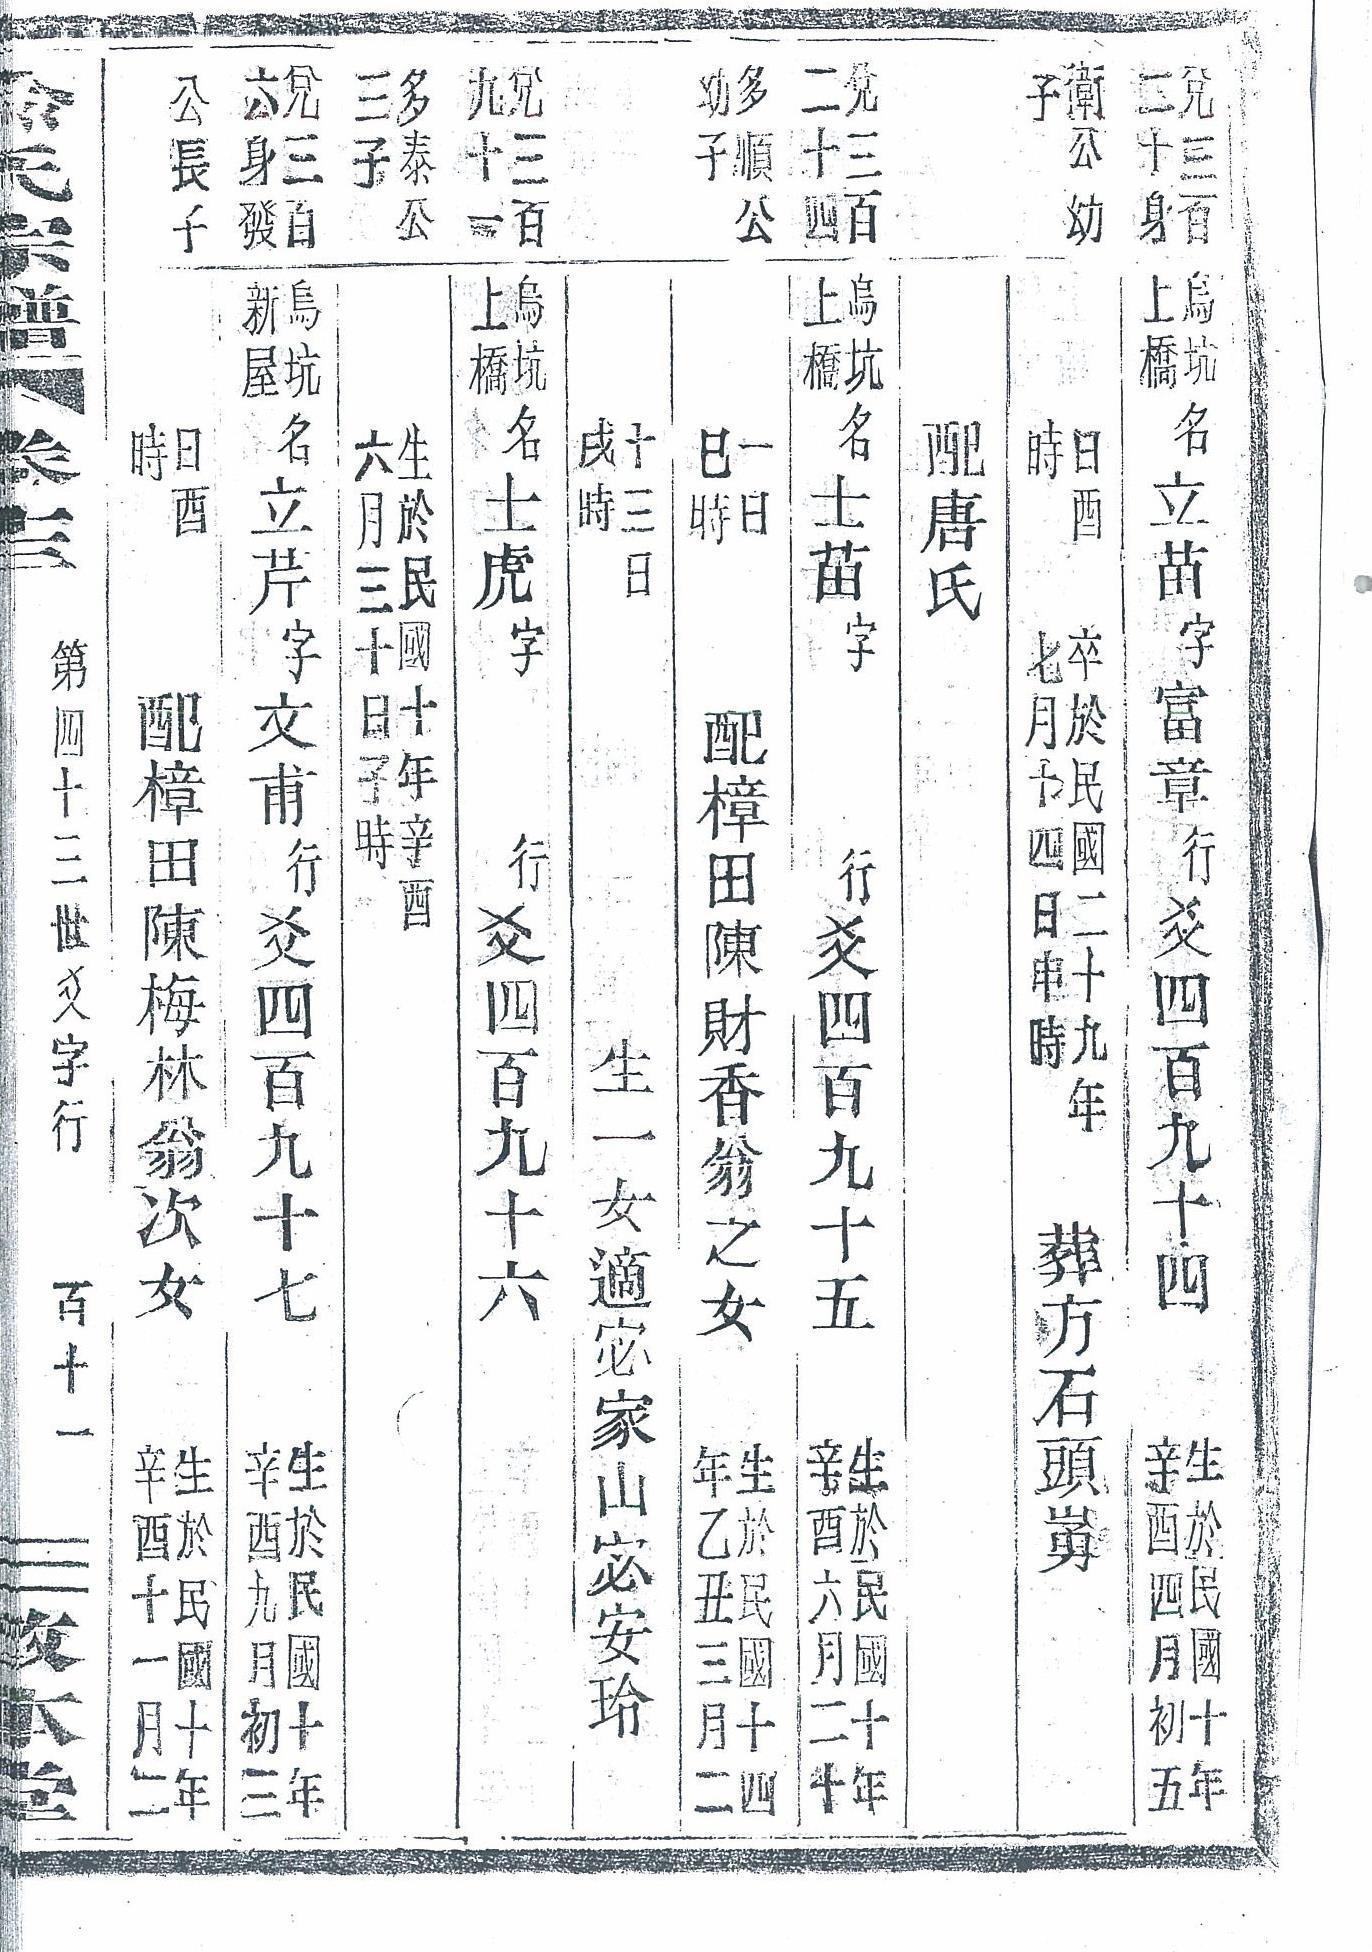 兌三百二十身
烏坑上橋 名立苗字富章行爻四百九十四 生於民國十年辛酉四月初五
衛公幼子
日酉時 卒於民國二十九年七月十四日申時 葬方石頭
配唐氏
兌三百二十四
烏坑上橋 名士苗字 行爻四百九十五 生於民國十年辛酉六月二十
多順公幼子
一日巳時 配樟田陳財香翁之女 生於民國十四年乙丑三月二
十三日戌時 生一女適宓家山宓安玲
兌三百九十一
烏坑上橋 名士虎字 行爻四百九十六
多泰公三子
生於民國十年辛酉六月三十日子時
兌三百六身發
烏坑新屋 名立芹字文甫行爻四百九十七 生於民國十年辛酉九月初三
公長子
日酉時 配樟田陳梅林翁次女 生於民國十年辛酉十一月二
第四十三世爻字行 百十一
氏宗譜 卷三 敦本堂